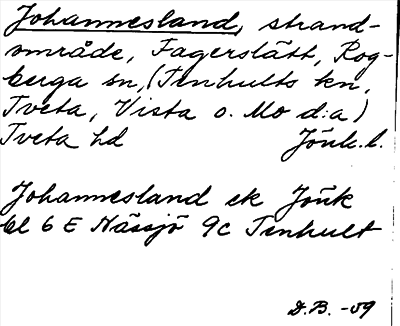 Johannesland, strand-
område, Fagerslätt, Rog-
berga sn, (Tenhults kn,
Tveta, Vista o. Mo d:a)
Tveta hd Jönk. l.
Johannesland ek Jönk
bl 6 E Nässjö 9c Tenhult
D.B. -09